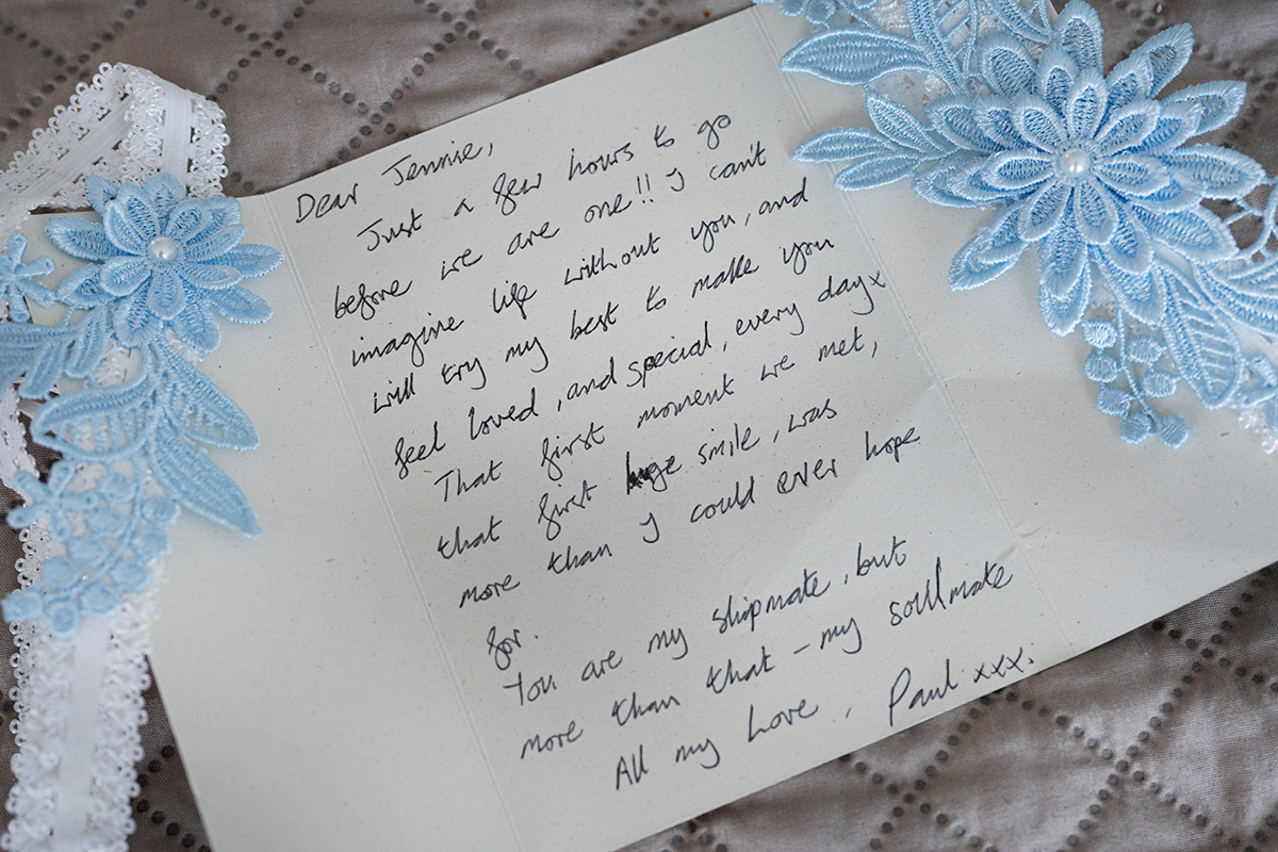 Dear Jennie,
Just a few hours to go
before we are one!! I can't
imagine life without you, and
will try my best to make you
feel loved, and special, every day x
That first moment we met,
that first huge smile, was
more than I could ever hope
for.
You are my shipmate, but
more than that - my soulmate
All my Love, Paul xxx.